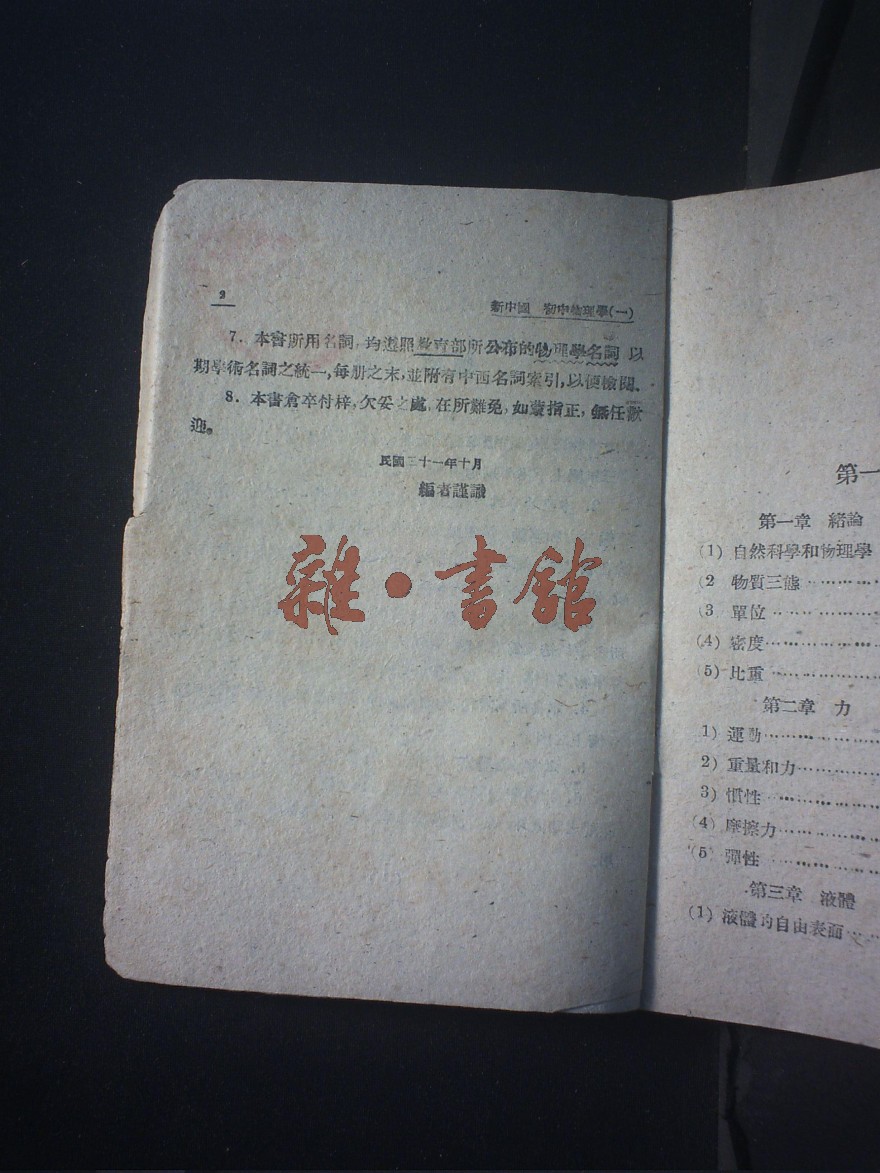 2
新中國 初中物理學(一)
7. 本書所用名詞,均遵照教育部所公布的物理學名詞 以
期學術名詞之統一,每册之末,並附有中西名詞索引,以便檢閱、
8. 本書倉卒付梓,欠妥之處,在所難免,如蒙指正,無任歡
迎。
民國三十一年十月
編者謹識
雜·書館
第一
第一章 緒論
(1) 自然科學和物理學
(2 物質三態…………
(3 單位…………
(4) 密度…………
(5) 比重…………
第二章 力
1) 運動…………
2) 重量和力…………
3) 慣性…………
(4) 摩擦力…………
(5 彈性…………
第三章 液體
(1) 液體的自由表面……